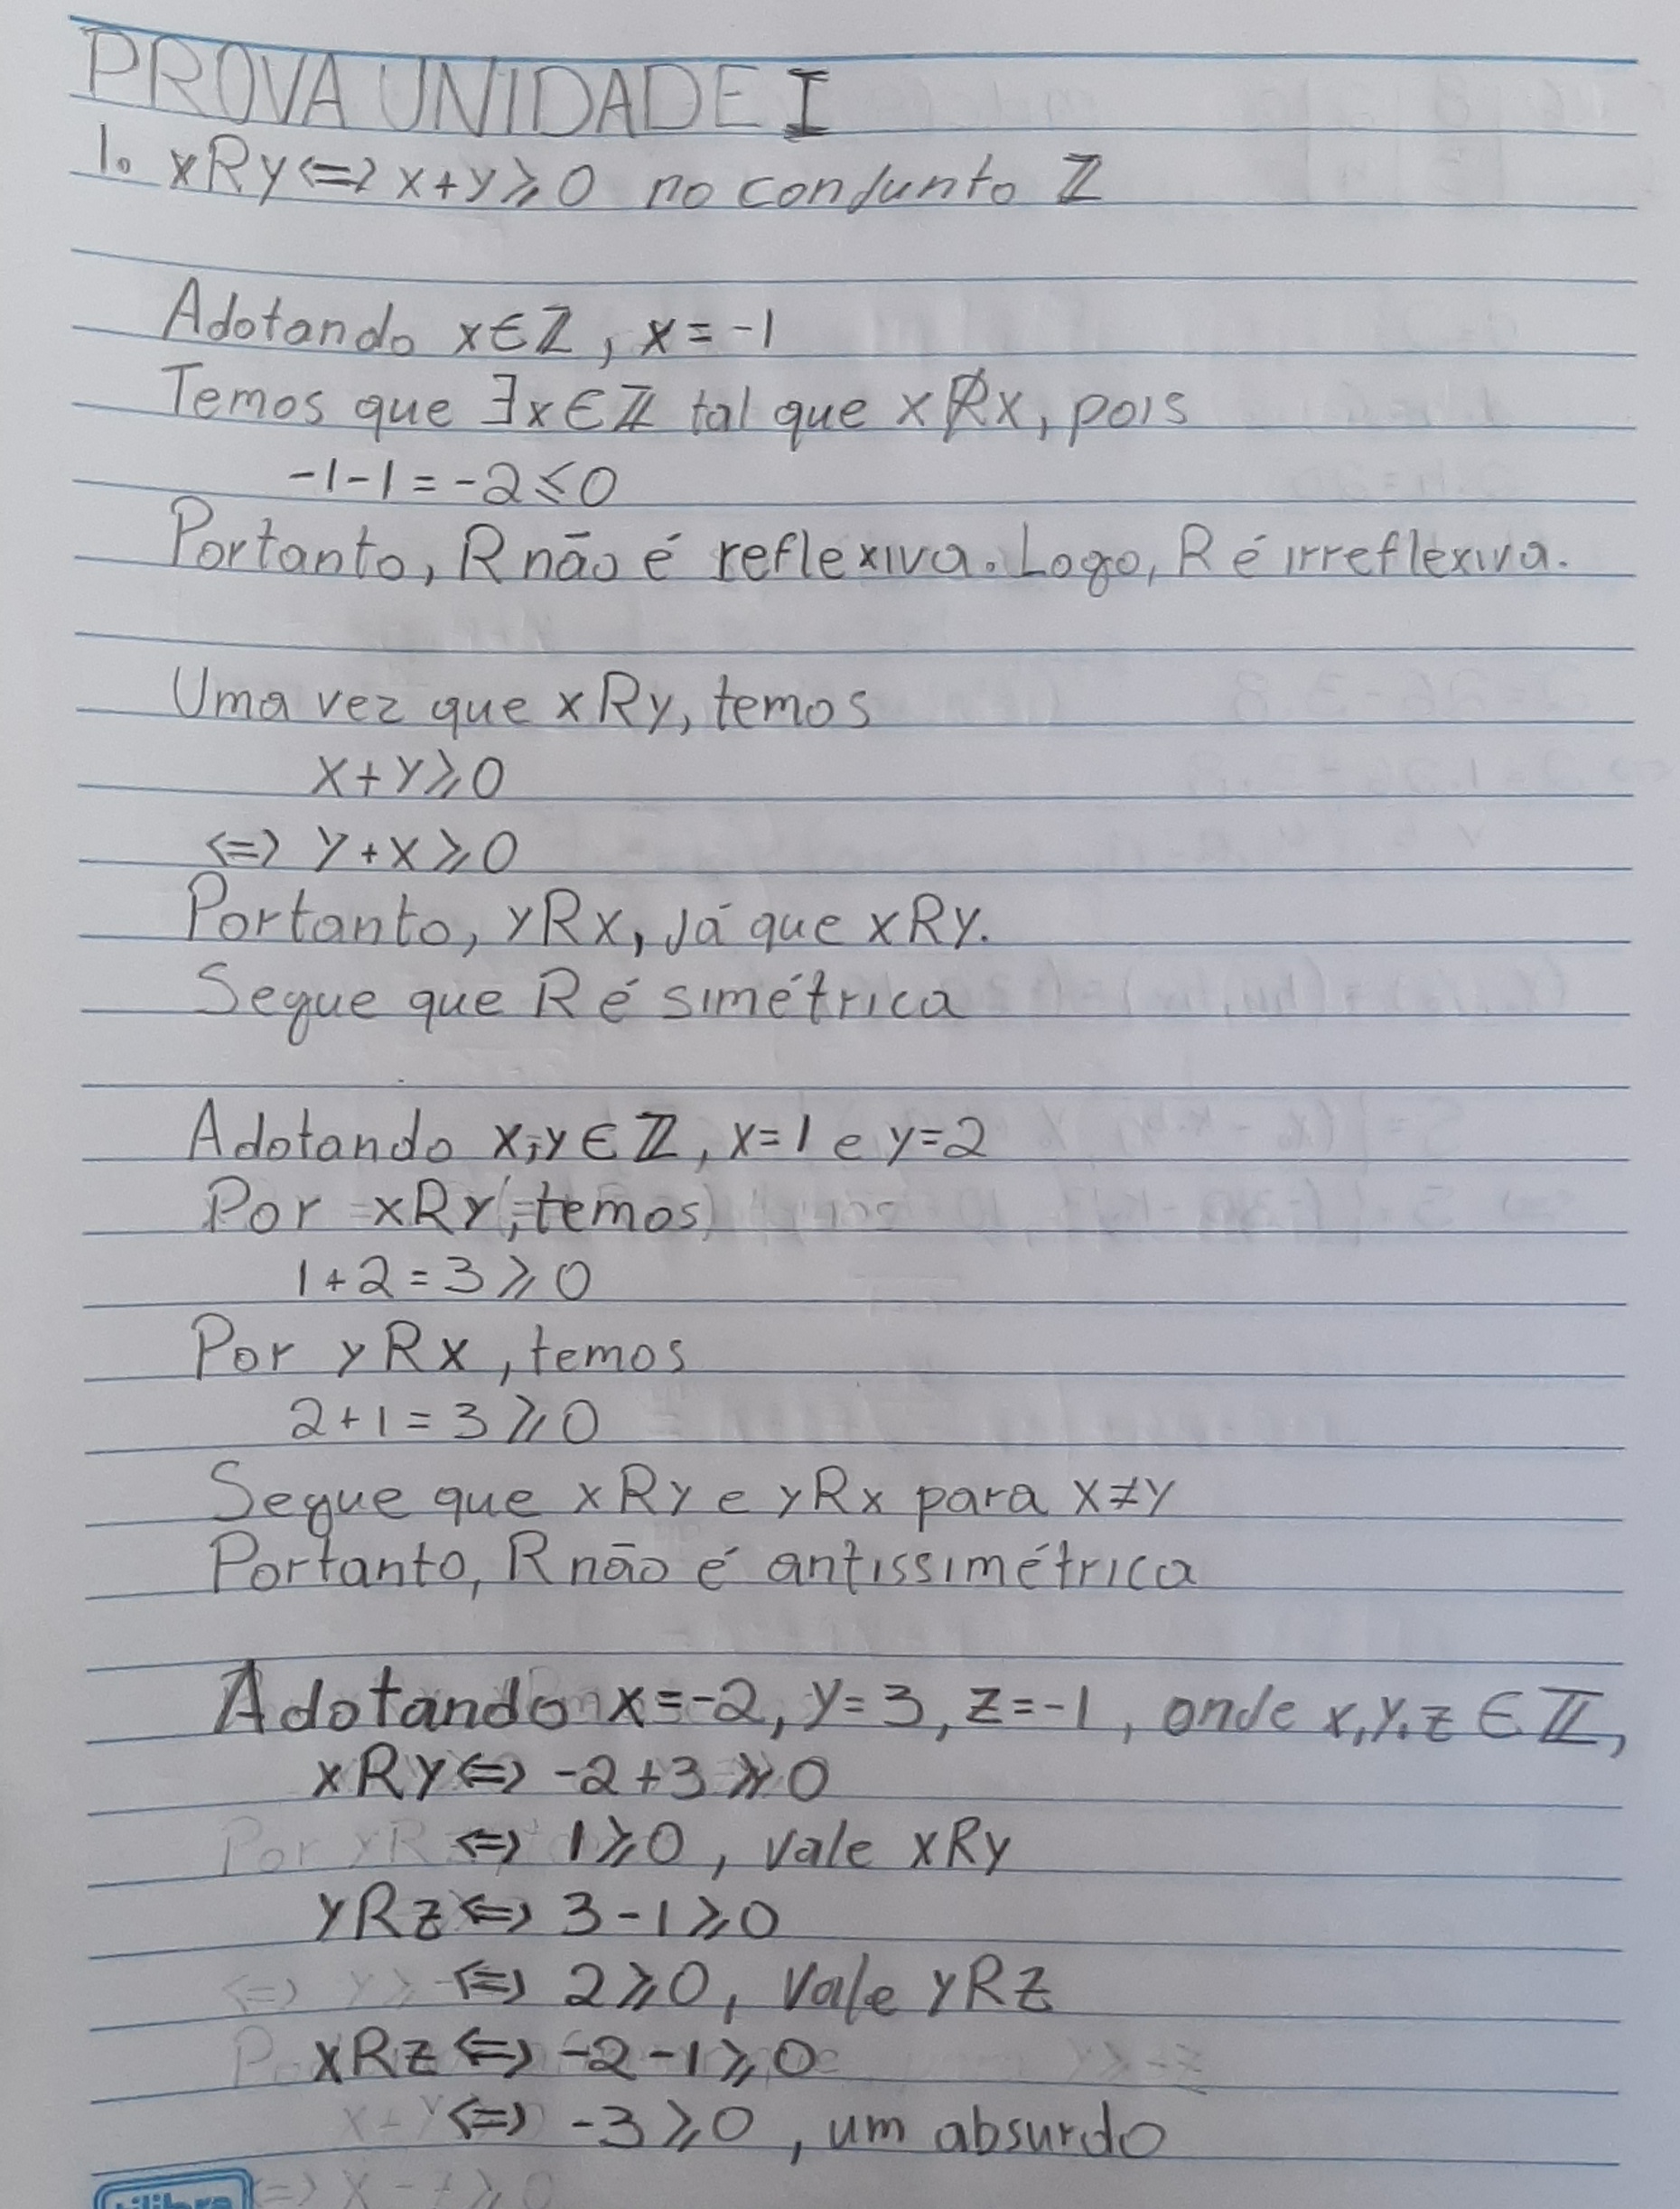 PROVA UNIDADE I
1. xRy⇔x+y⩾0 no conjunto ℤ
Adotando x∈ℤ, x=-1
Temos que ∃x∈ℤ tal que x R̸ x, pois
-1-1=-2≤0
Portanto, R não é reflexiva. Logo, R é irreflexiva.
Uma vez que xRy, temos
x+y⩾0
⇔ y+x⩾0
Portanto, yRx, já que xRy.
Segue que R é simétrica
Adotando x,y∈ℤ, x=1 e y=2
Por xRy, temos
1+2=3⩾0
Por yRx, temos
2+1=3⩾0
Segue que xRy e yRx para x≠y
Portanto, R não é antissimétrica
Adotando x=-2, y=3, z=-1, onde x,y,z∈ℤ,
xRy⇔ -2+3⩾0
⇔ 1⩾0, vale xRy
yRz⇔ 3-1⩾0
⇔ 2⩾0, vale yRz
xRz⇔ -2-1⩾0
⇔ -3⩾0, um absurdo